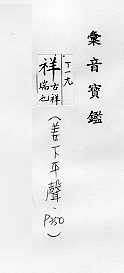 彙音寶鑑
丁一九
祥
吉祥
瑞也
(姜下平聲·P250)